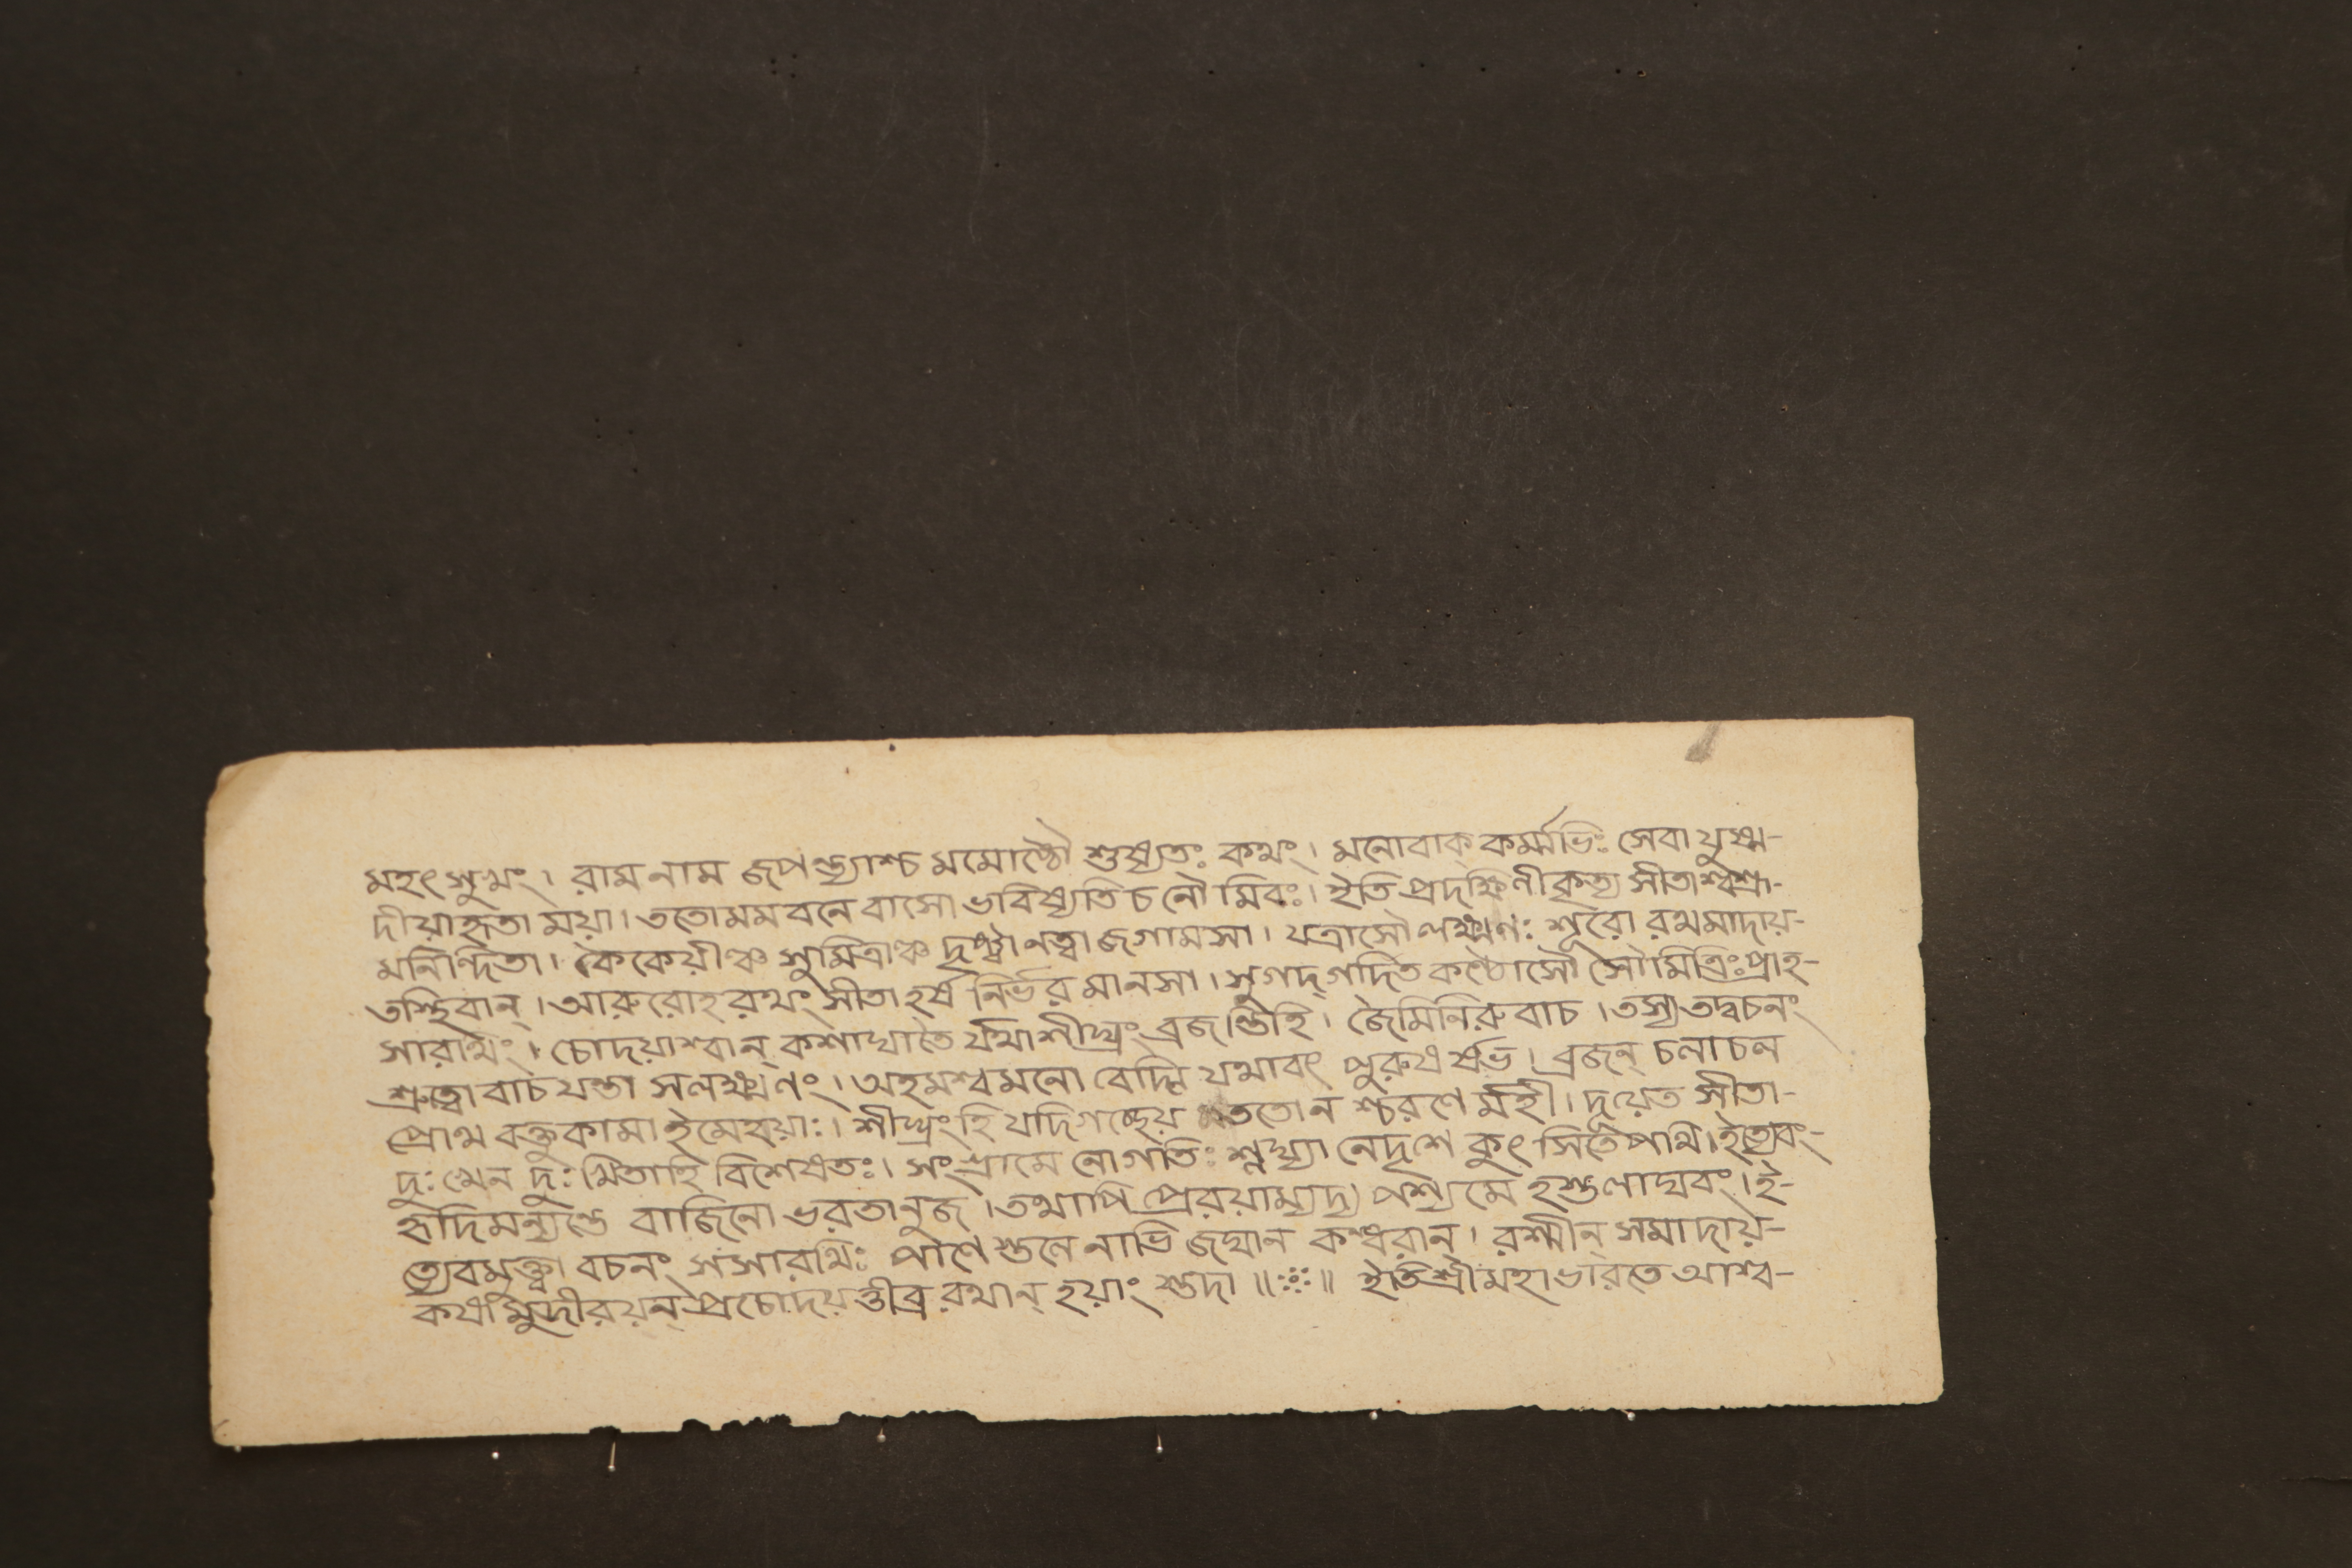 মহৎ সুখং। রামনাম জপন্ত্যাশ্চ মমোষ্ঠৌ শুষ্যতঃ কথং। মনোবাক্ কর্ম্মভিঃ সেবা যুষ্ম-
দীয়াহৃতা ময়া। ততো মম বনে বাসো ভবিষ্যতি চ নৌমি বঃ। ইতি প্রদক্ষিণীকৃত্য সীতা শ্বশ্রূ-
মনিন্দিতা। কৈকেয়ীঞ্চ সুমিত্রাঞ্চ দৃষ্ট্বা নত্বা জগাম সা। যত্রাসৌ লক্ষ্মণঃ শূরো রথমাদায়-
তস্থিবান্। আরুরোহ রথং সীতা হর্ষ নির্ভর মানসা। সুগদ্গদিত কণ্ঠোসৌ সৌমিত্রিঃ প্রাহ-
সারথিং। চোদয়াশ্বান্ কশাঘাতৈ র্যথা শীঘ্রং ব্রজন্তি হি। জৈমিনিরুবাচ। তস্য তদ্বচনং
শ্রুত্বোবাচ যন্তা স লক্ষ্মণং। অহমশ্বমনো বেদ্মি যথাবৎ পুরুষর্ষভ। ব্রজন্ চলাচল
প্রোথ বক্তুকামা ইমে হয়াঃ। শীঘ্রং হি যদি গচ্ছেয় ততো ন শ্চরণৈ র্মহী। দূয়েত সীতা-
দুঃখেন দুঃখিতাহি বিশেষতঃ। সংগ্রামে নো গতিঃ শ্লাঘ্যা নেদৃশে কুৎসিতে পথি। ইত্যেবং-
হৃদি মন্যন্তে বাজিনো ভরতানুজ। তথাপি প্রেরয়াম্যদ্য পশ্য মে হস্তলাঘবং। ই-
ত্যেবমুক্ত্বা বচনং স সারথিঃ পাণি স্তনে নাভি জঘান কন্ধরান্। রশ্মীন্ সমাদায়-
কথামুদীরয়ন্ প্রচোদয় ত্তীব্ররথান্ হয়াং স্তদা॥ ॥ ইতি শ্রীমহাভারতে আশ্ব-